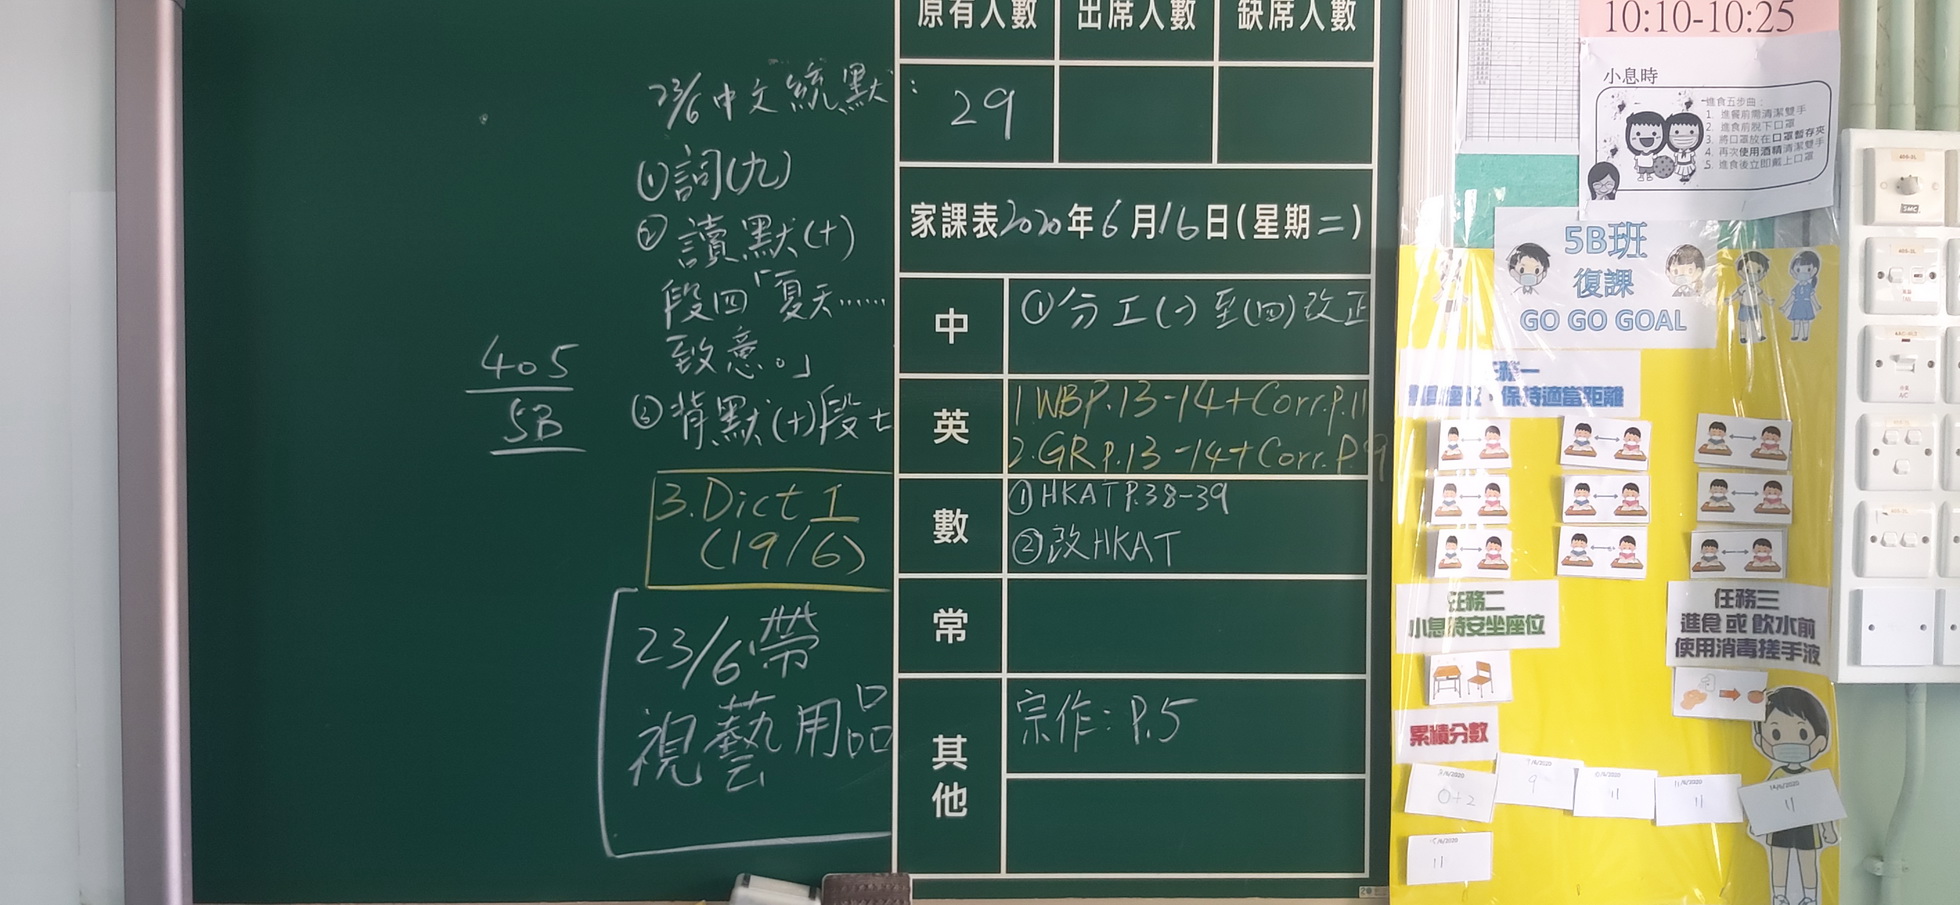 原有人數 出席人數 缺席人數
29
家課表2020年6月16日(星期二)
中
①分工(一)至(四)改正
英
1.WBP.13-14+Corr.P.11
2.GRP.13-14+Corr.P.9
數
①HKATP.38-39
②改HKAT
常
其他
宗作:P.5
23/6中文統默:
①詞(九)
②讀默(十)
段四「夏天……
致意。」
③背默(十)段七
3.Dict 1
(19/6)
23/6帶
視藝用品
405
5B
10:10-10:25
小息時
進食五步曲:
1. 進餐前需清潔雙手
2. 進食前脫下口罩
3. 將口罩放在口罩暫存夾
4. 再次使用酒精清潔雙手
5. 進食後立即戴上口罩
5B班
復課
GO GO GOAL
保持適當距離
任務二
小息時安坐座位
任務三
進食 或 飲水前
使用消毒搓手液
累積分數
0+2
9
11
11
11
11